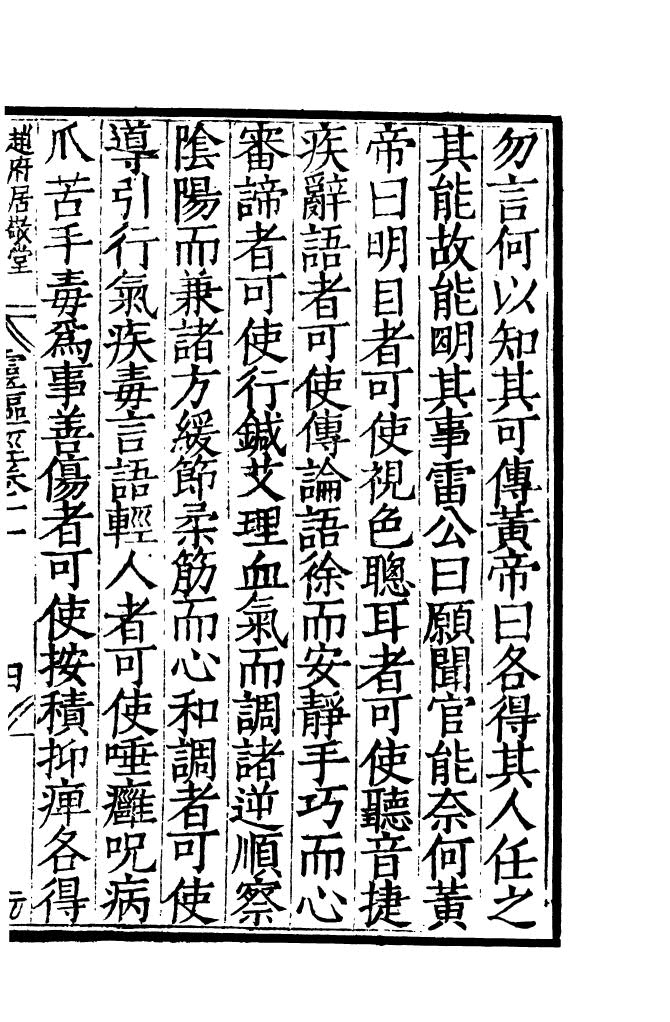 勿言何以知其可傳黃帝曰各得其人任之
其能故能明其事雷公曰願聞官能奈何黃
帝曰明目者可使視色聰耳者可使聽音捷
疾辭語者可使傳論語徐而安靜手巧而心
審諦者可使行鍼艾理血氣而調諸逆順察
陰陽而兼諸方緩節柔筋而心和調者可使
導引行氣疾毒言語輕人者可使唾癰呪病
爪苦手毒爲事善傷者可使按積抑痺各得
趙府居敬堂